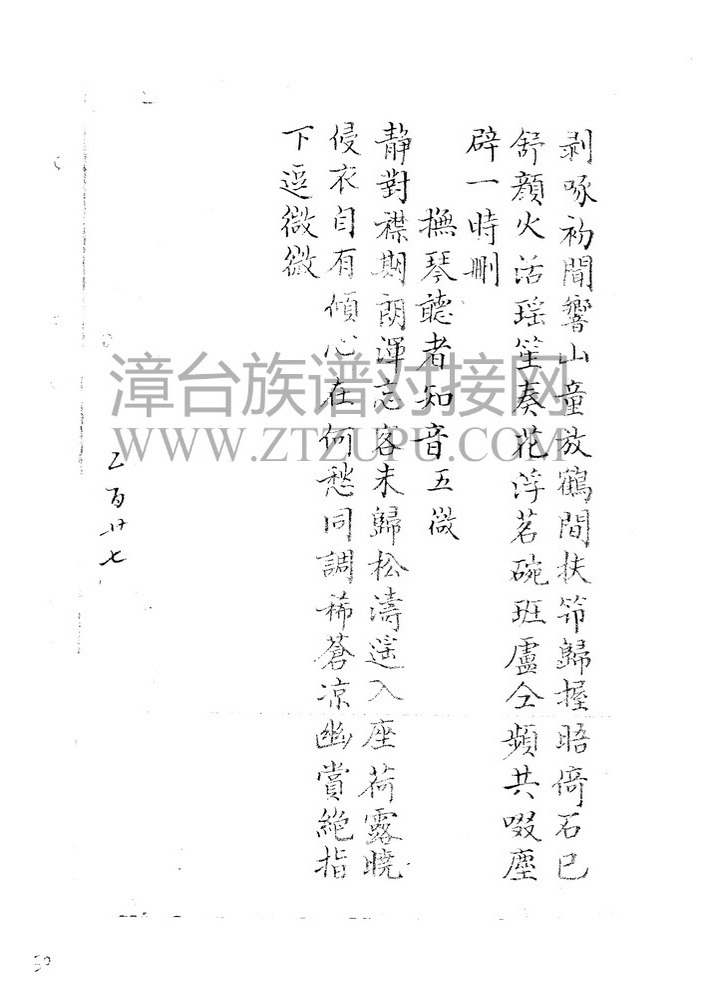 剥啄初聞響山童放鶴間扶笻歸握晤倚石已
舒顏火活瑶笙奏花浮茗碗班盧仝頻共啜塵
辟一時刪
撫琴聽者知音五微
靜對襟期朗渾忘客未歸松濤遥入座荷露曉
侵衣自有傾心在何愁同調稀蒼凉幽賞絶指
下逗微微
乙百廿七
漳台族谱对接网
WWW.ZTZUPU.COM